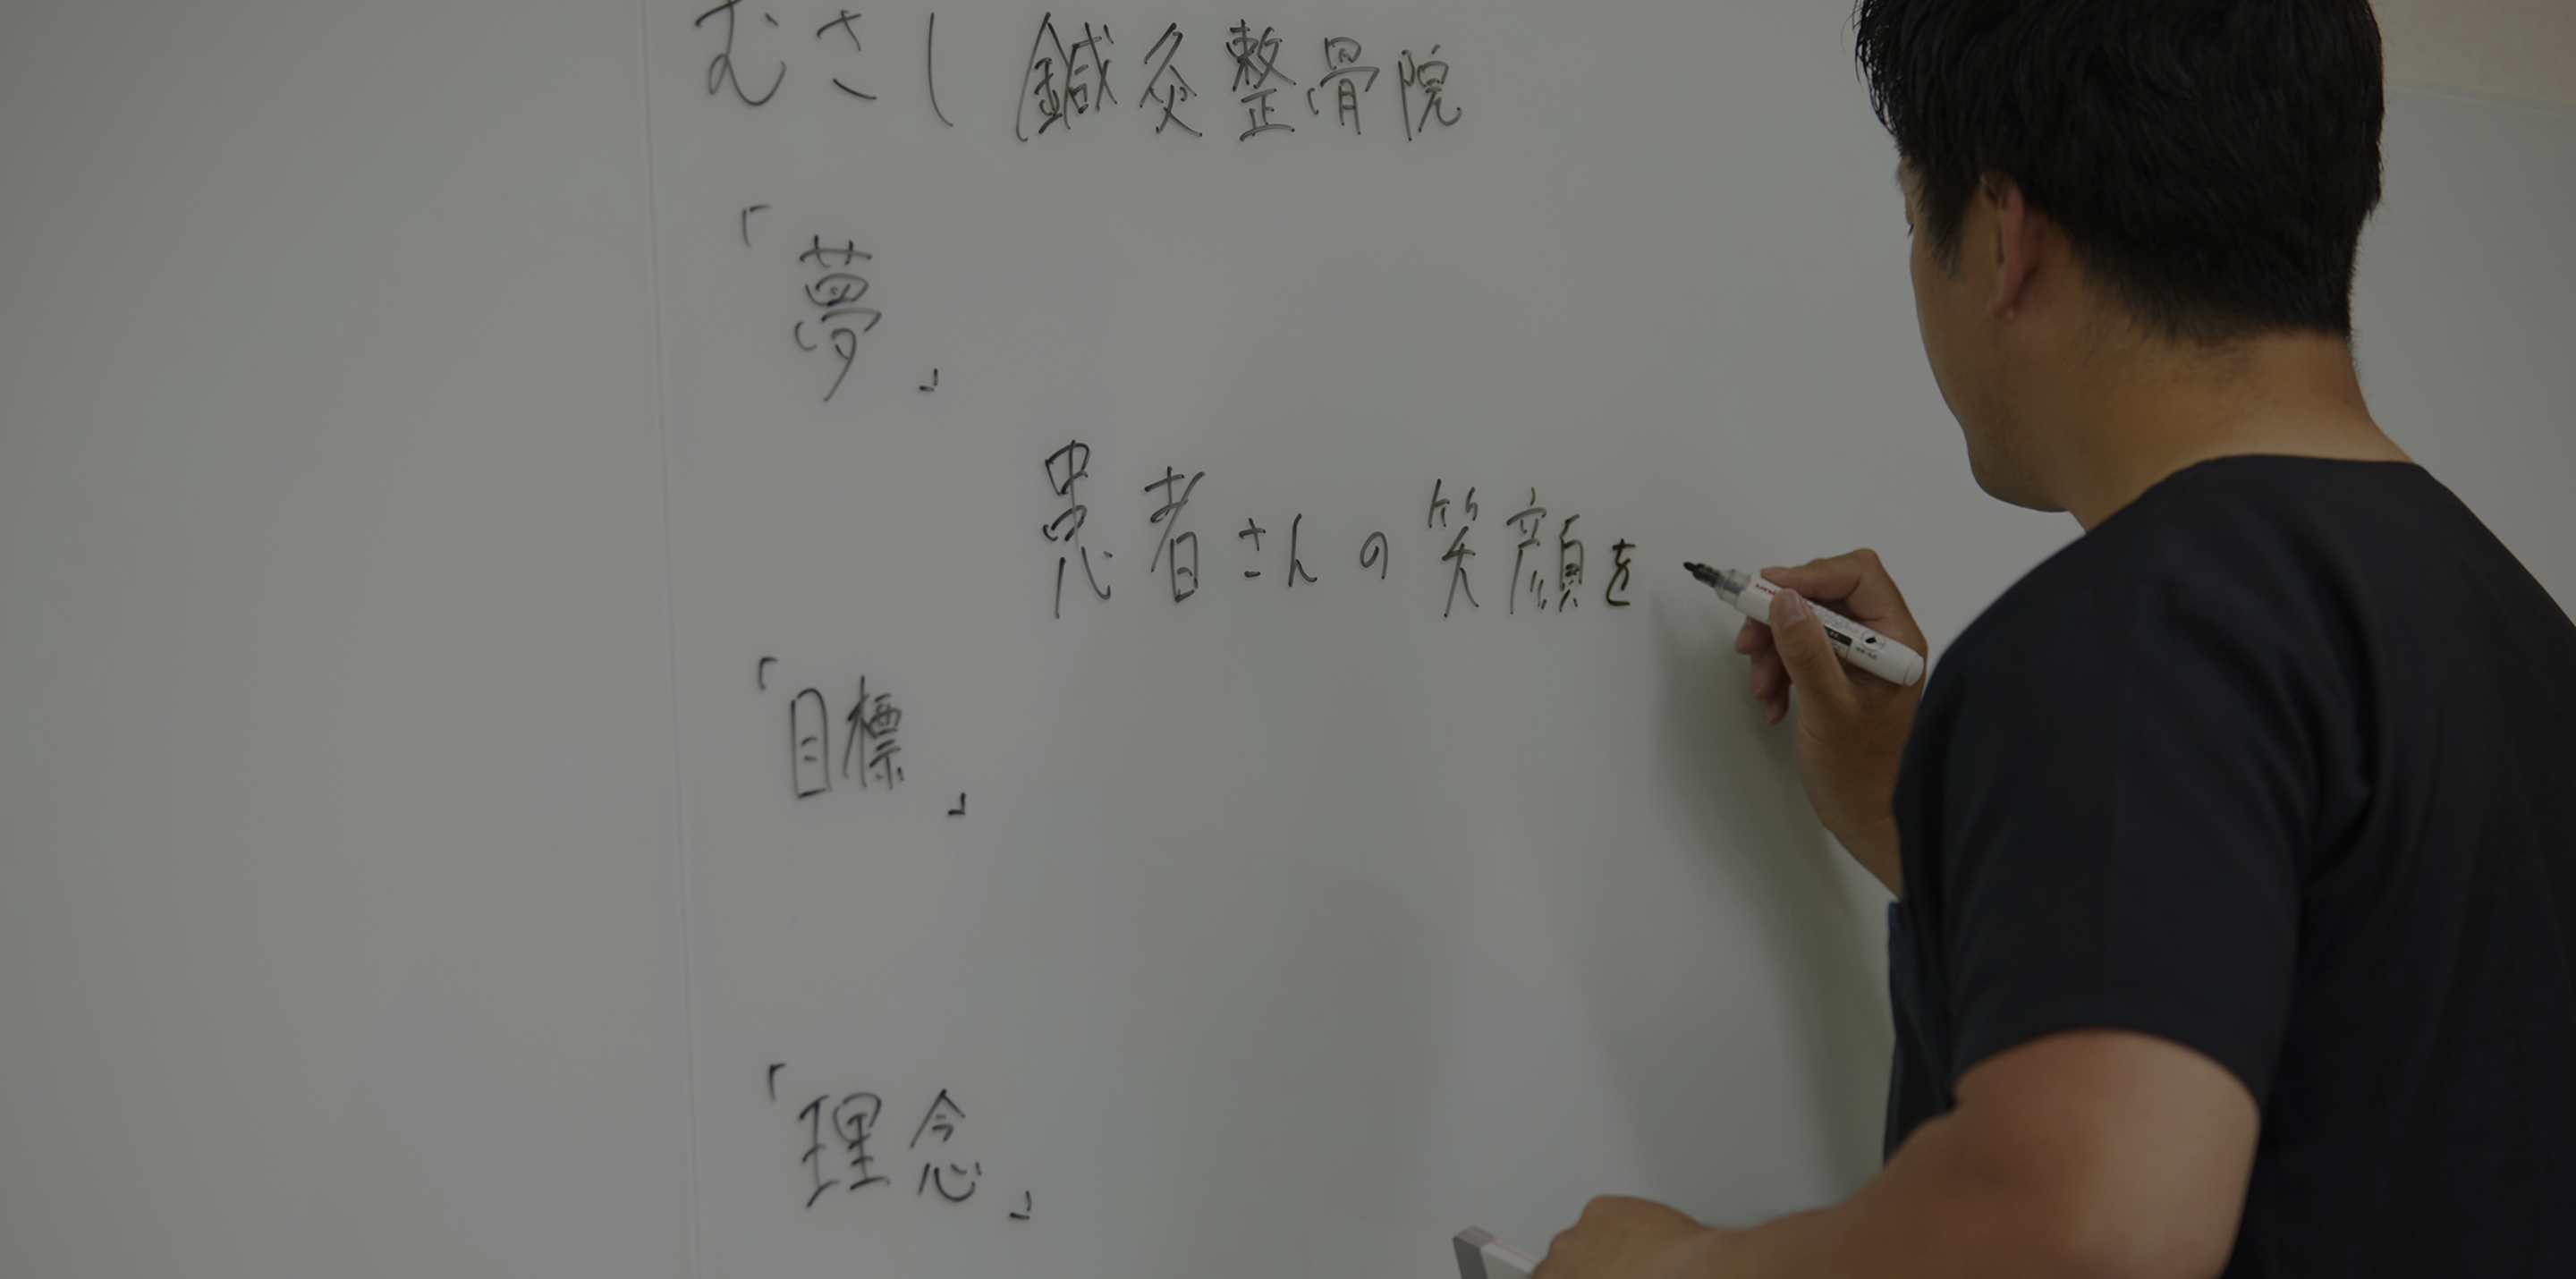 むさし鍼灸整骨院
「夢」
患者さんの笑顔を
「目標」
「理念」